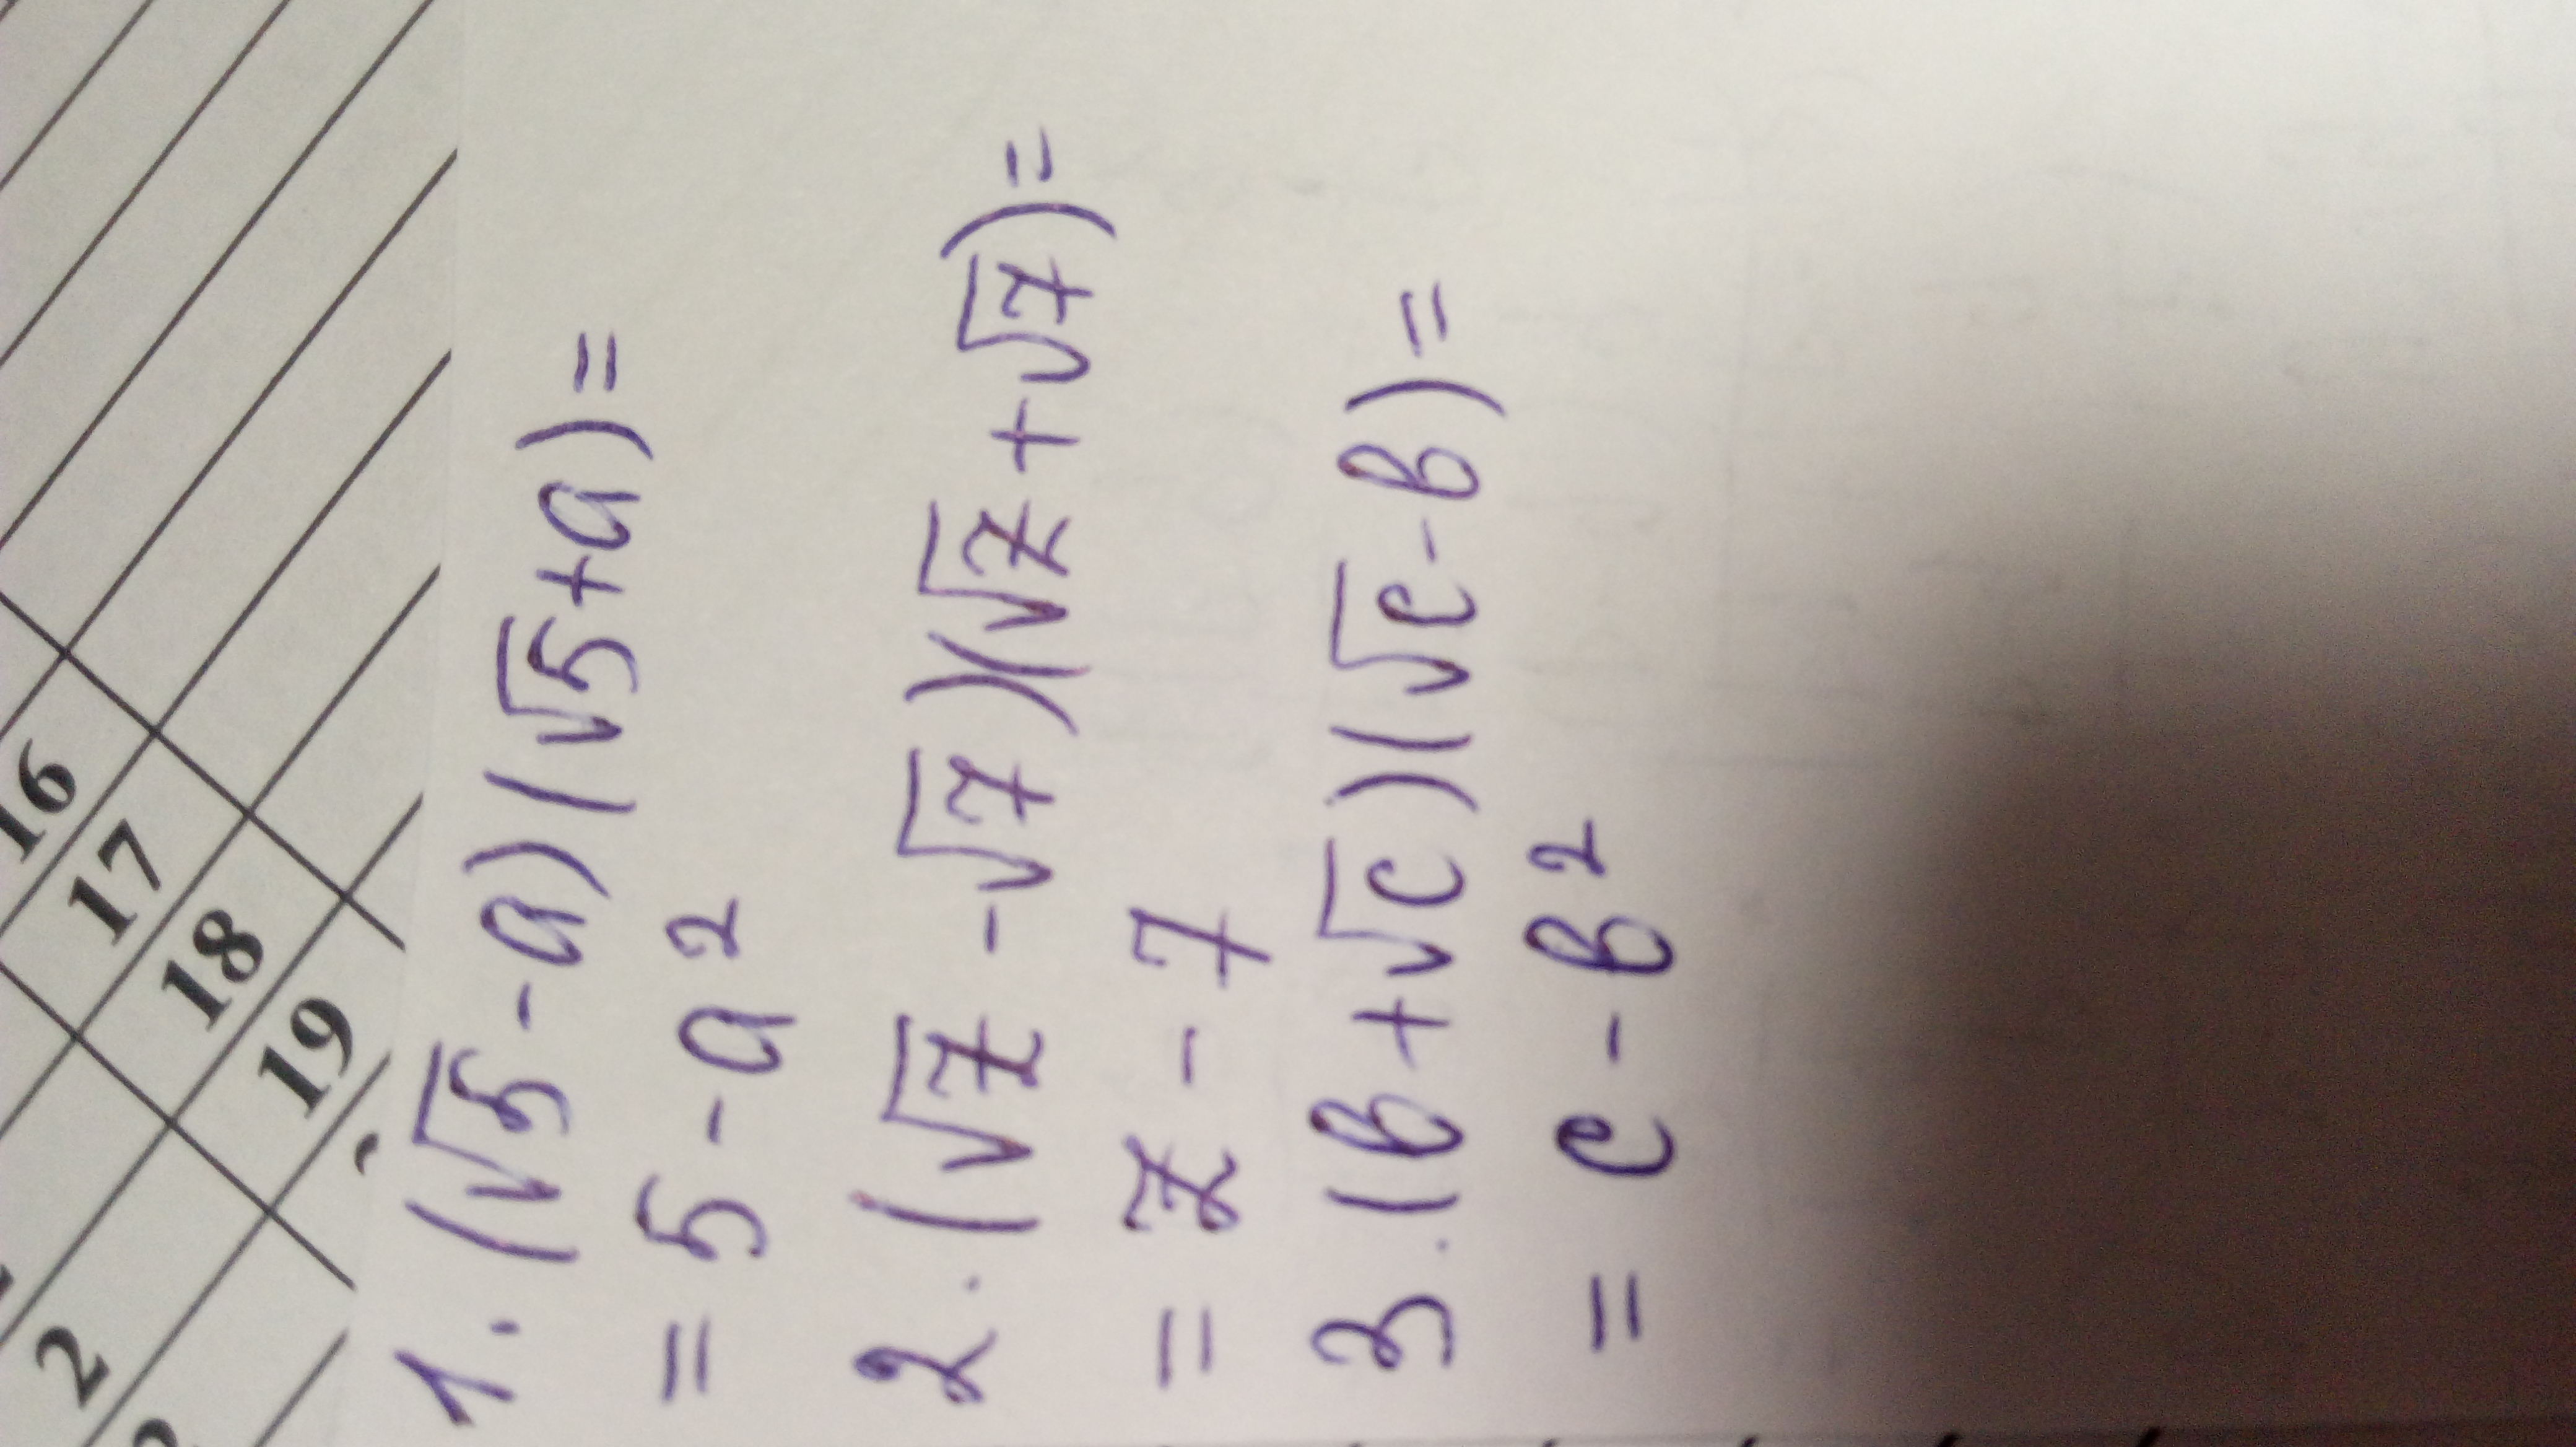 16
17
18
19
2
1. (√5 - a)(√5 + a) =
= 5 - a²
2. (√z - √7)(√z + √7) =
= z - 7
3. (b + √c)(√c - b) =
= c - b²